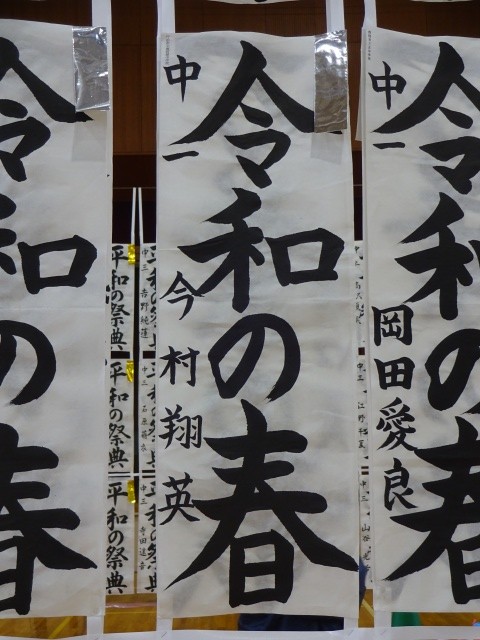 令和の春
中一
今村翔英
令和の春
中一
岡田愛良
令和の春
平和の祭典
中三
平和の祭典
中三
平和の祭典
中三